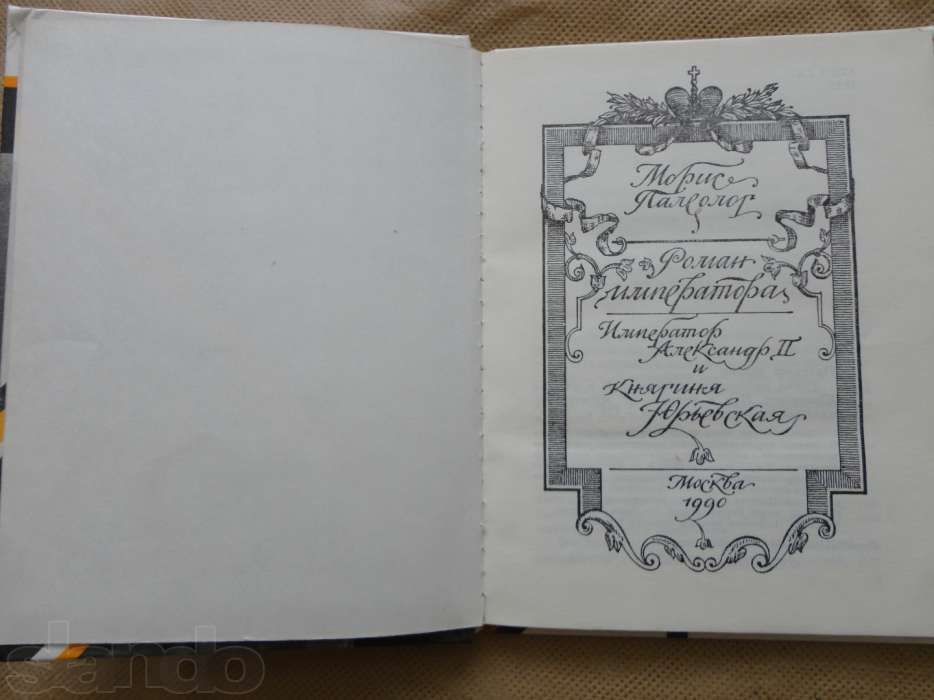 Морис
Палеолог
Роман
императора
Император
Александр II
и
Княгиня
Юрьевская
Москва
1990
slando